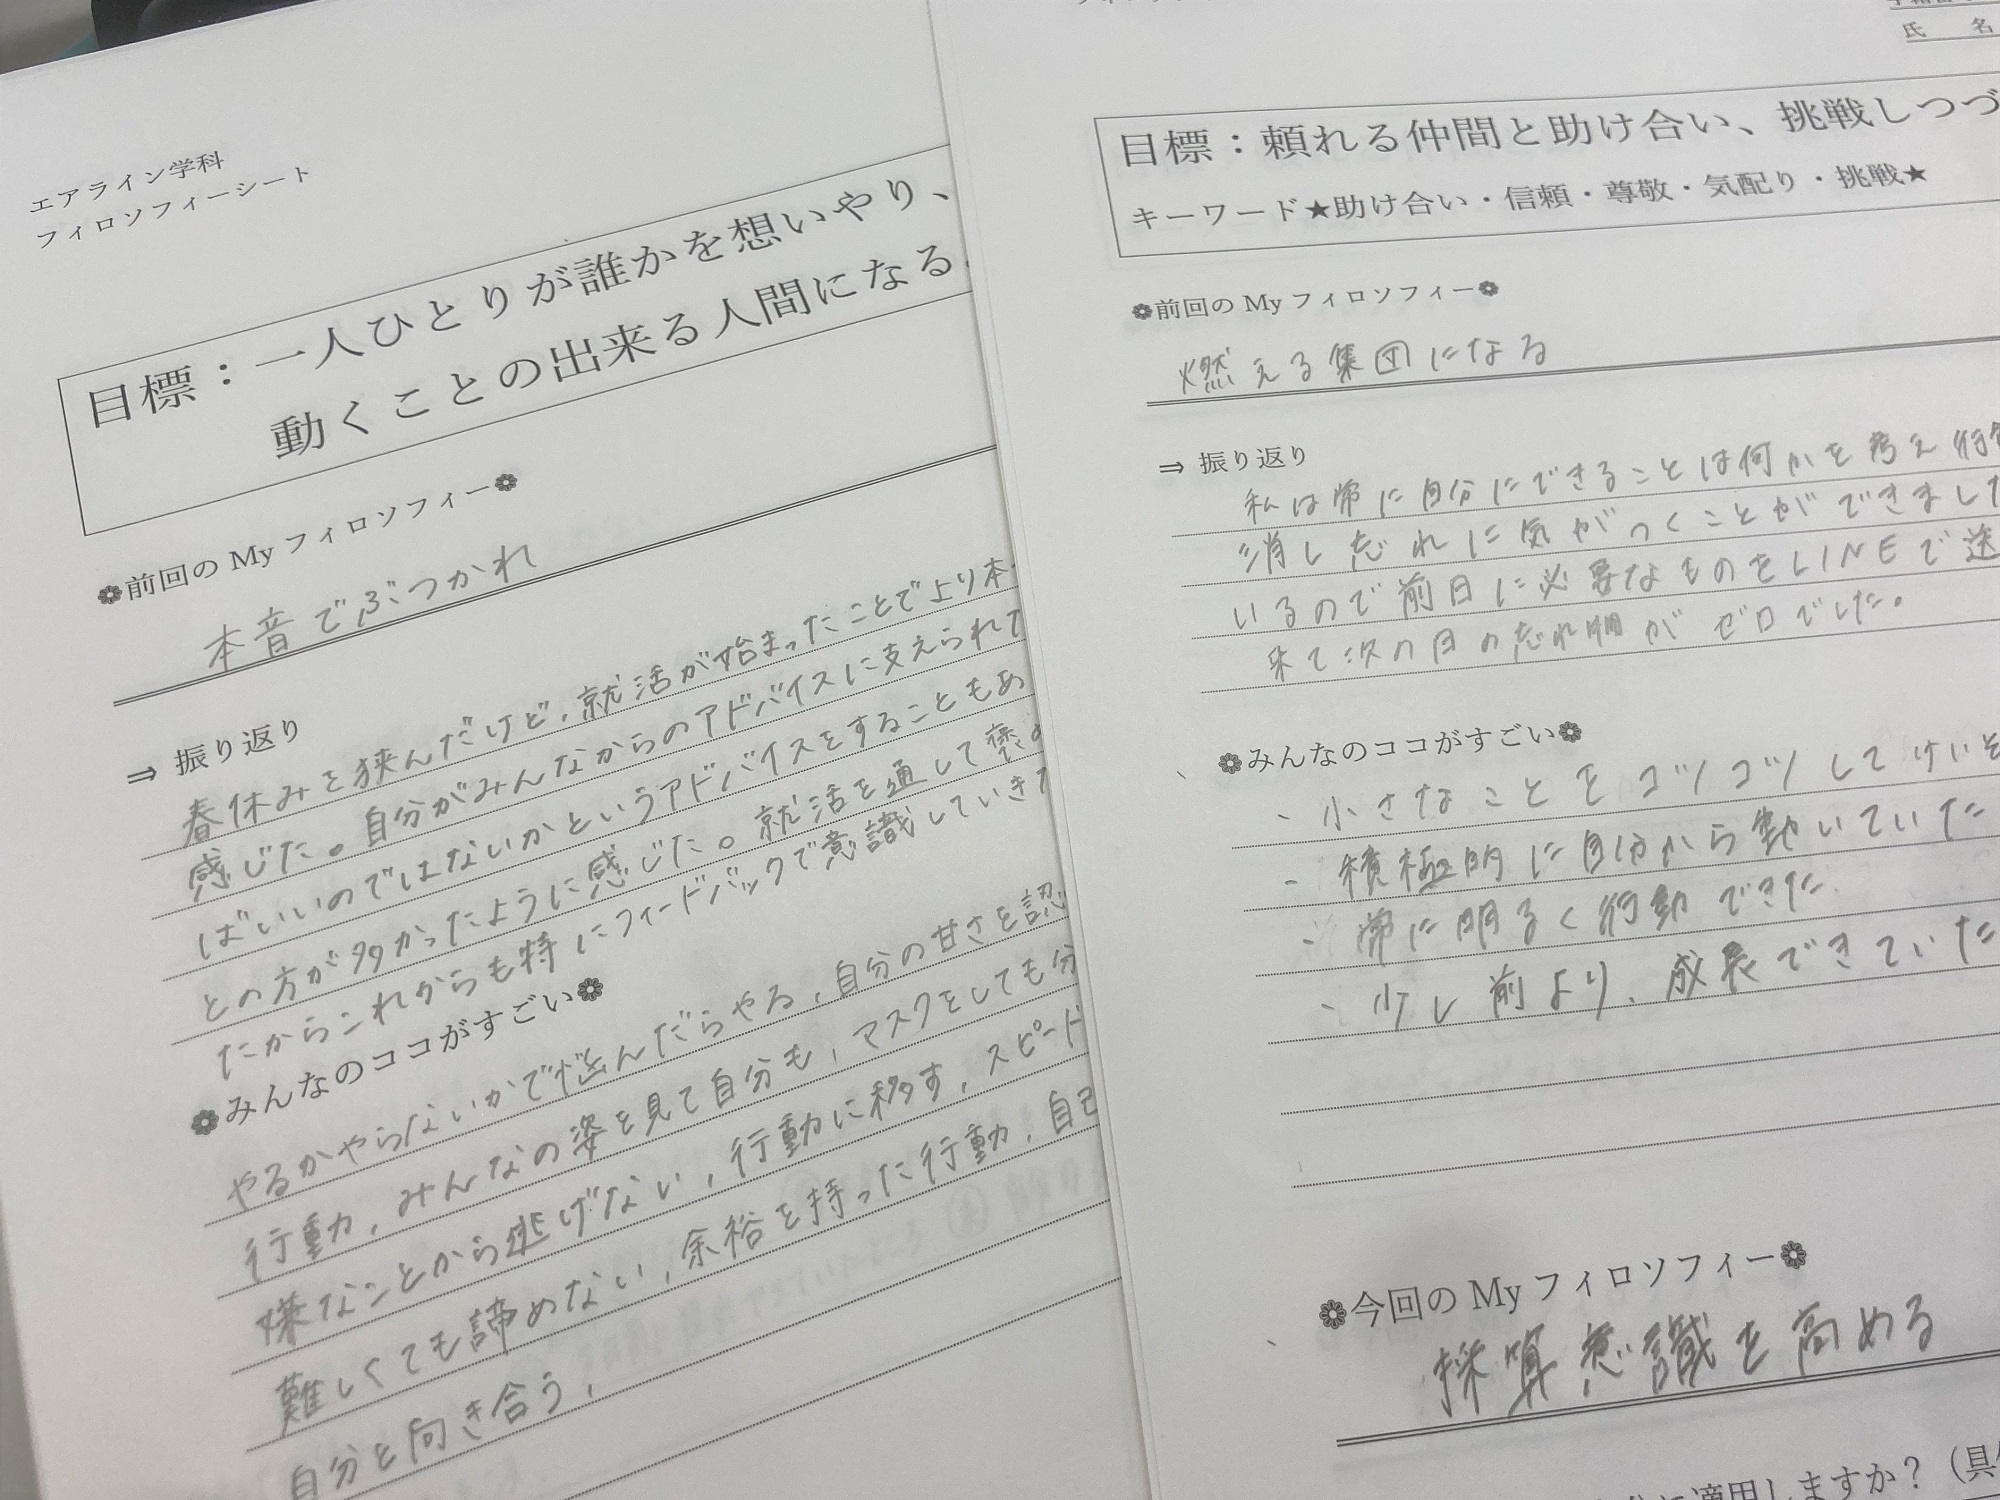 エアライン学科
フィロソフィーシート
目標：一人ひとりが誰かを想いやり、
動くことの出来る人間になる
❁前回の My フィロソフィー❁
本音でぶつかれ
⇒ 振り返り
春休みを挟んだけど、就活が始まったことでより本
感じた。自分がみんなからのアドバイスに支えられて
ばいいのではないかというアドバイスをすることもあ
との方が多かったように感じた。就活を通して褒め
たからこれからも特にフィードバックで意識していきた
❁みんなのココがすごい❁
やるかやらないかで悩んだらやる、自分の甘さを認
行動、みんなの姿を見て自分も、マスクをしても分
嫌なことから逃げない、行動に移す、スピード
難しくても諦めない、余裕を持った行動、自己
自分と向き合う、
氏 名
目標：頼れる仲間と助け合い、挑戦しつづ
キーワード★助け合い・信頼・尊敬・気配り・挑戦★
❁前回の My フィロソフィー❁
燃える集団になる
⇒ 振り返り
私は常に自分にできることは何かを考え行動
消し忘れに気がつくことができました
いるので前日に必要なものをLINEで送
来て次の日の忘れ物がゼロでした。
❁みんなのココがすごい❁
、小さなことをコツコツしてけいぞ
- 積極的に自分から動いていた
- 常に明るく行動できた
、少し前より、成長できていた
❁今回の My フィロソフィー❁
採算意識を高める
に適用しますか？（具体